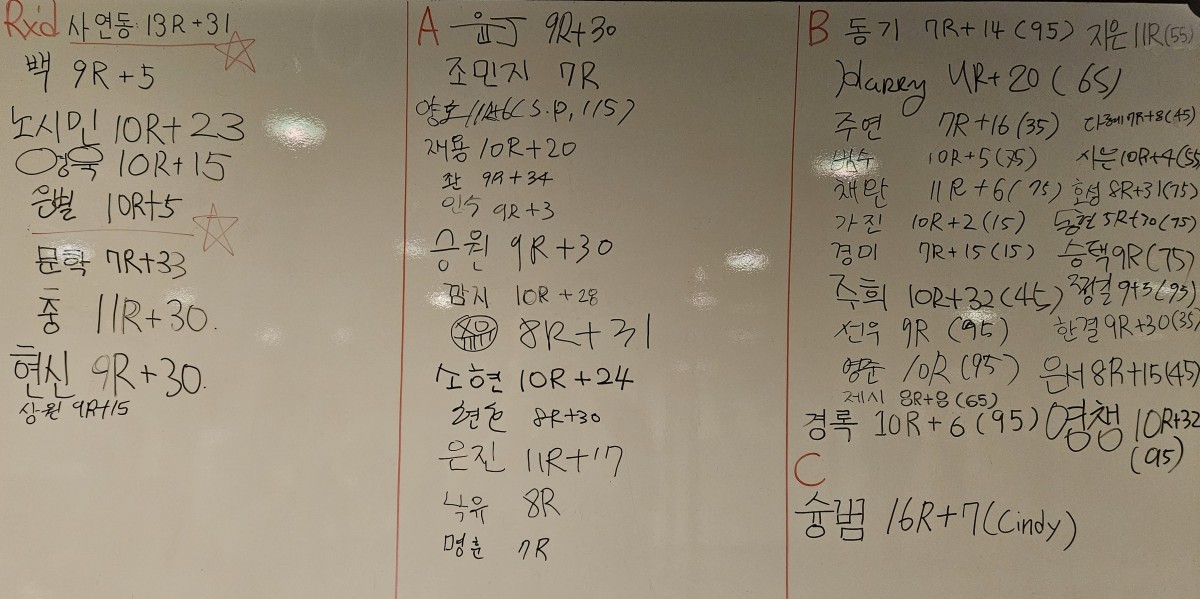 Rx'd 사연동 13R+31
백 9R+5
노시민 10R+23
영욱 10R+15
은별 10R+5
문학 7R+33
중 11R+30.
현신 9R+30.
상원 9R+15
A 윤J 9R+30
조민지 7R
양호 11R+6(S.P, 115)
재용 10R+20
좌 9R+34
인수 9R+3
승원 9R+30
깜지 10R+28
유 8R+31
소현 10R+24
현 8R+30
은진 11R+17
낙유 8R
명훈 7R
B 동기 7R+14(95) 지은 11R(55)
Harry 4R+20(65)
주연 7R+16(35) 다혜 7R+8(45)
10R+5(75) 시은 10R+4(55
채만 11R+6(75) 호성 8R+31(75)
가진 10R+2(15) 동현 5R+30(75)
경미 7R+15(15) 승택 9R(75)
주희 10R+32(45) 정걸 9+3(95)
선우 9R (95) 한결 9R+30(35)
영준 10R(95) 은서 8R+15(45)
제시 8R+8(65)
경록 10R+6(95) 영챔 10R+32
(95)
C
슝범 16R+7(Cindy)